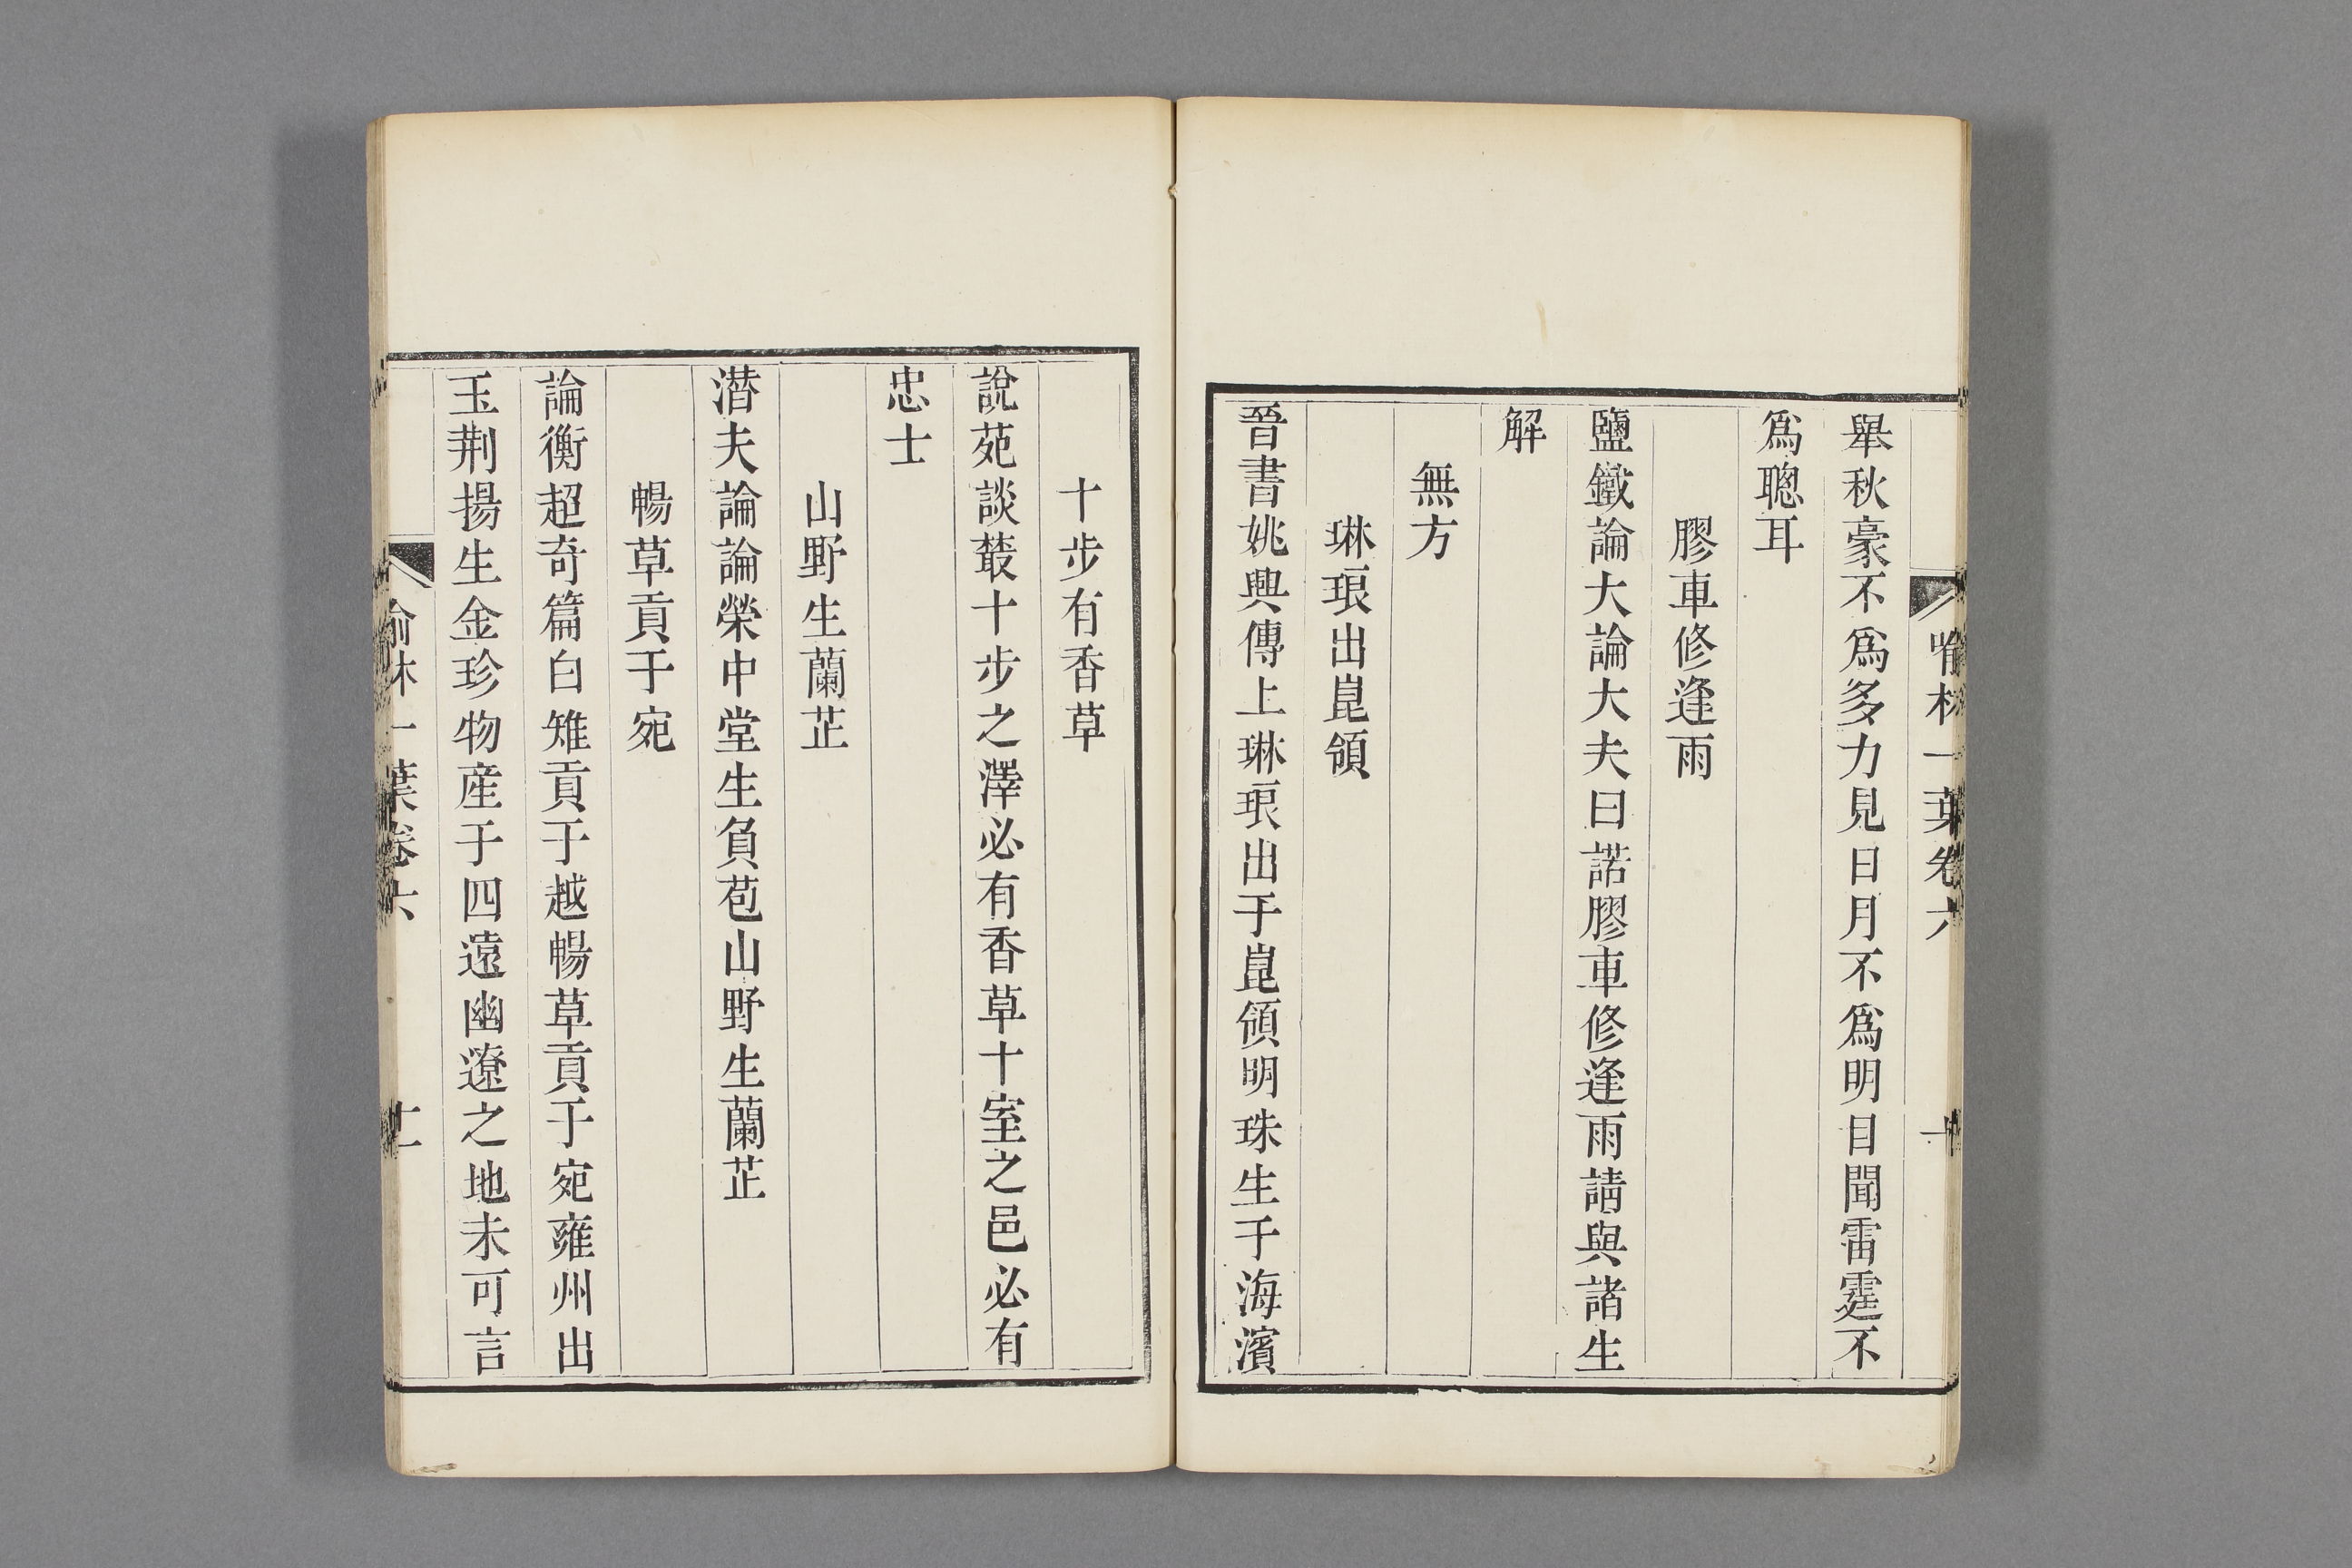 喻林一葉卷六
十
舉秋豪不爲多力見日月不爲明目聞雷霆不
爲聰耳
膠車修逢雨
鹽鐵論大論大夫曰諾膠車修逢雨請與諸生
解
無方
琳琅出崑領
晉書姚興傳上琳琅出于崑領明珠生于海濱
十步有香草
說苑談藂十步之澤必有香草十室之邑必有
忠士
山野生蘭芷
潛夫論論榮中堂生負苞山野生蘭芷
暢草貢于宛
論衡超奇篇白雉貢于越暢草貢于宛雍州出
玉荆揚生金珍物產于四遠幽遼之地未可言
喻林一葉卷六